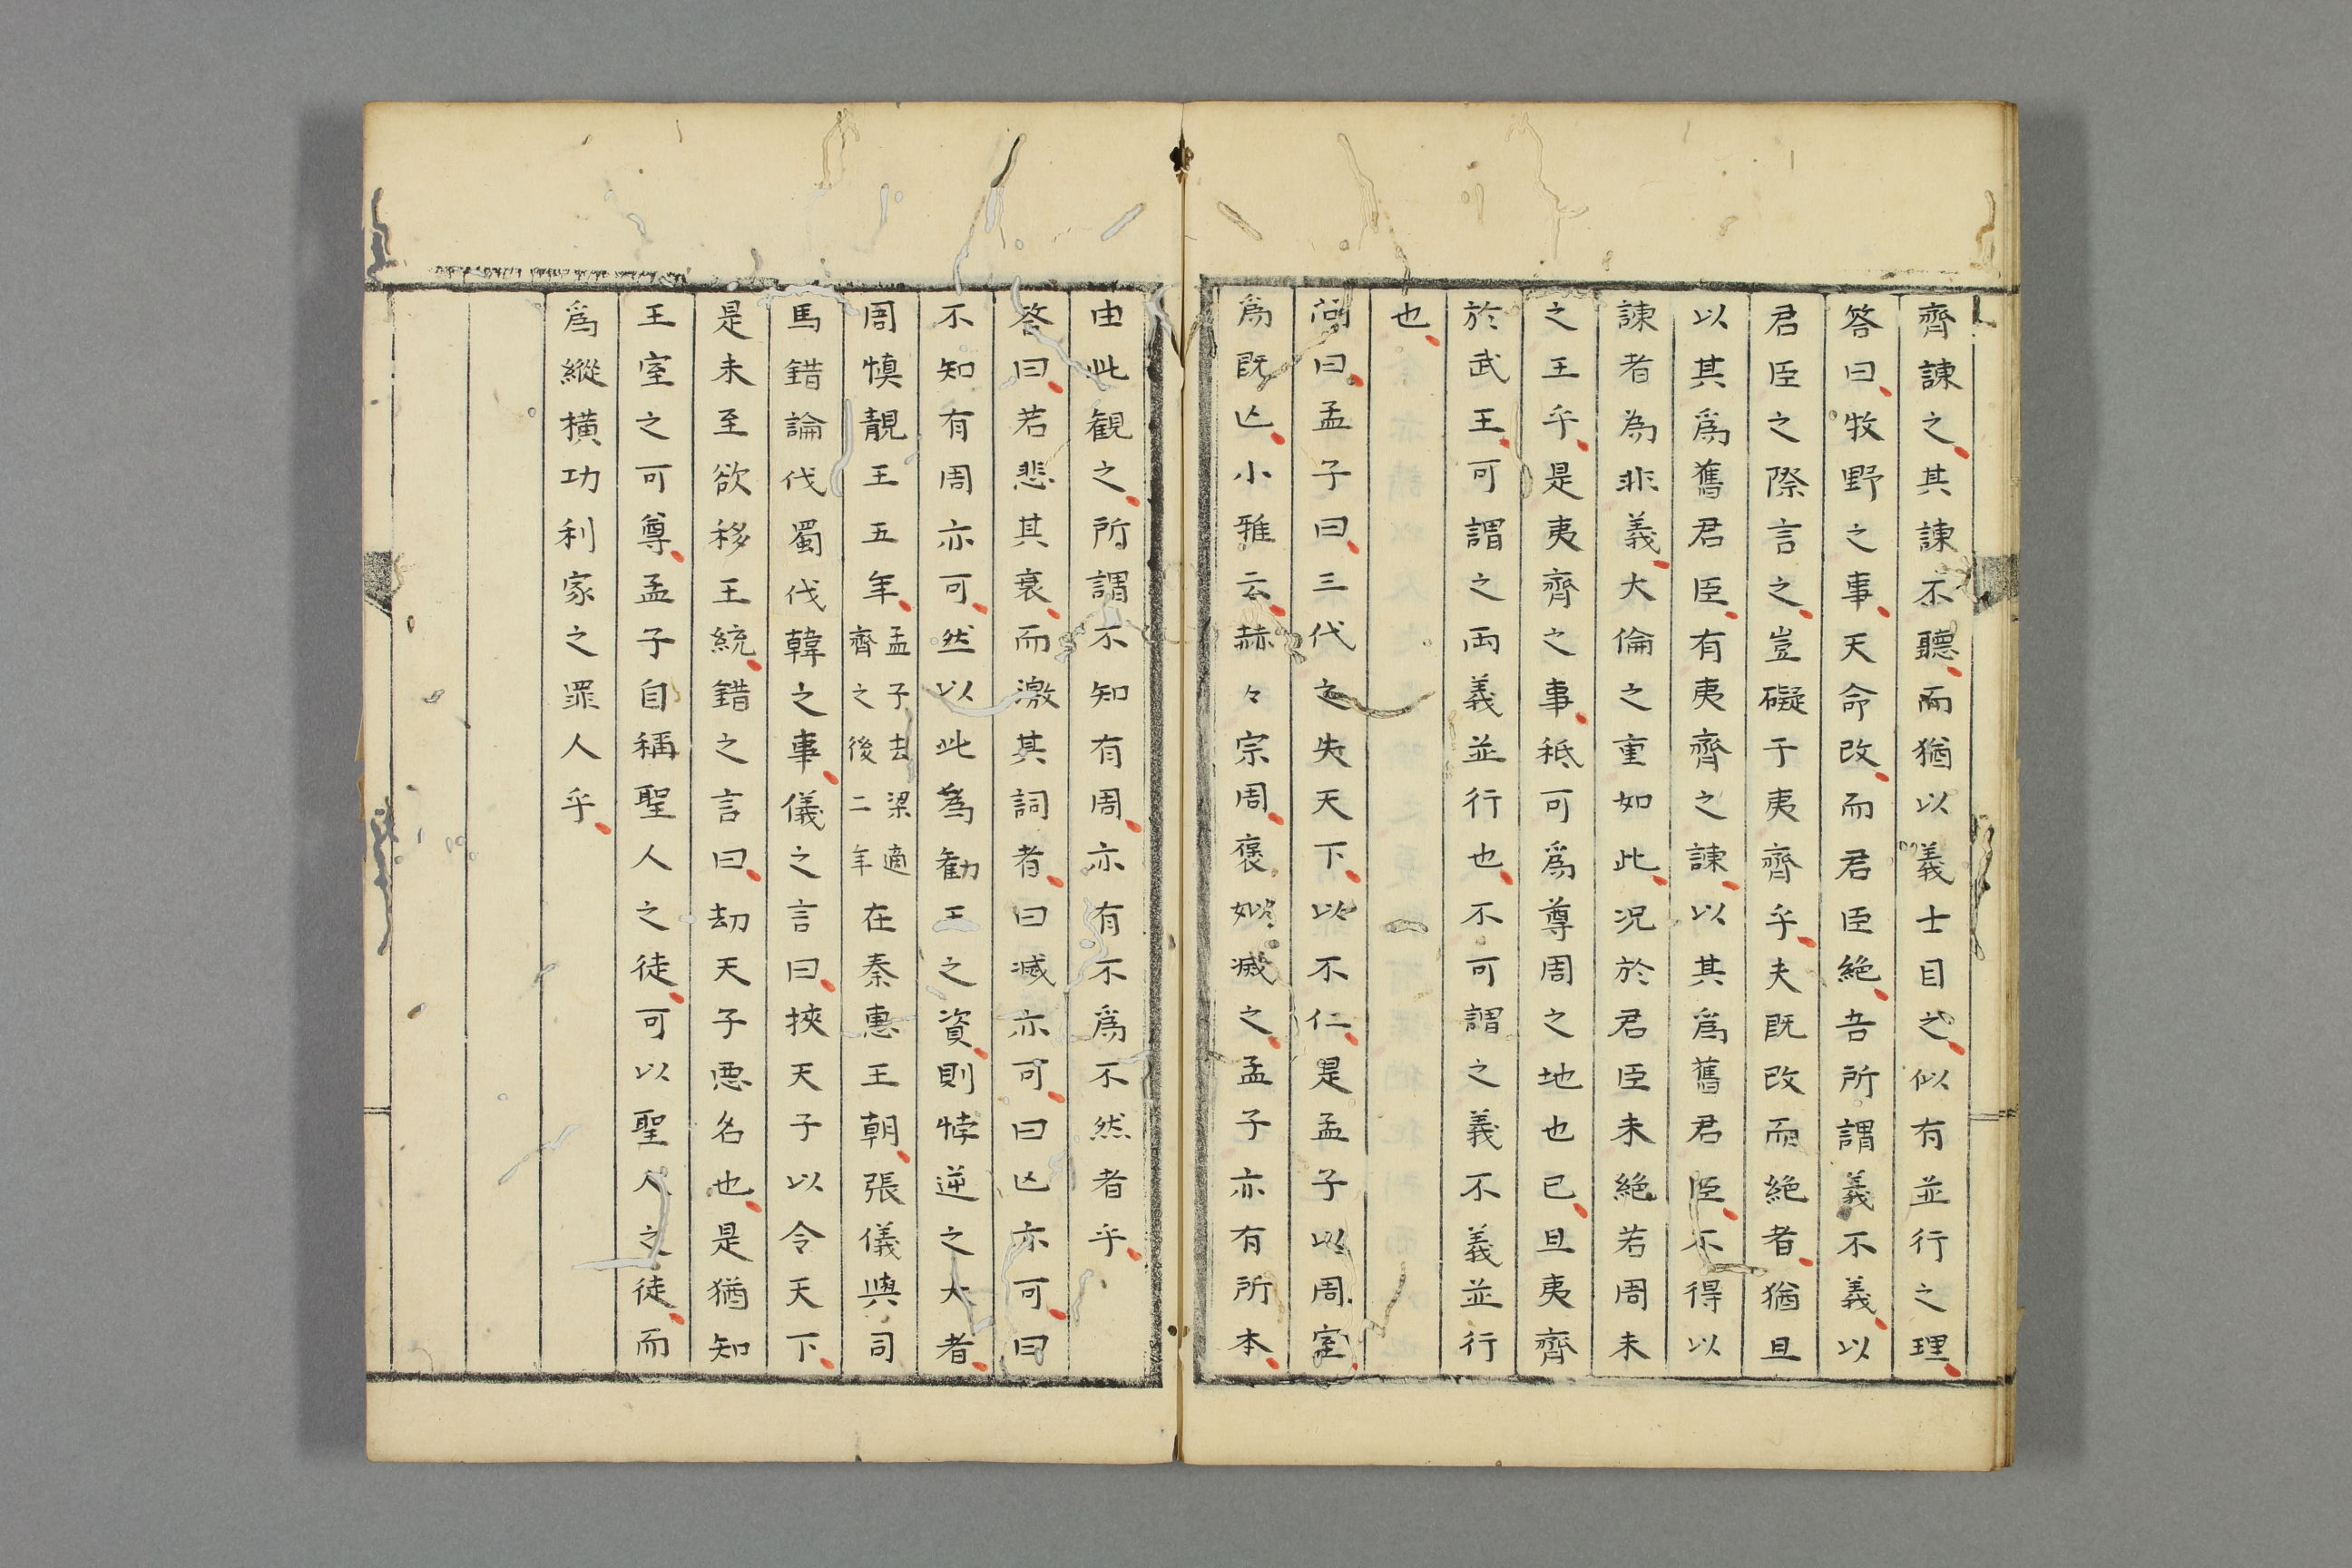 齊諫之其諫不聽而猶以義士目之似有並行之理
答曰牧野之事天命改而君臣絶吾所謂義不義以
君臣之際言之豈礙于夷齊乎夫既改而絶者猶且
以其爲舊君臣有夷齊之諫以其爲舊君臣不得以
諫者為非義大倫之重如此况於君臣未絶若周未
之王乎是夷齊之事秪可爲尊周之地也已且夷齊
於武王可謂之両義並行也不可謂之義不義並行
也
問曰孟子曰三代之失天下以不仁是孟子以周室
爲既亾小雅云赫々宗周褒姒滅之孟子亦有所本
由此観之所謂不知有周亦有不爲不然者乎
答曰若悲其衰而激其詞者曰滅亦可曰亾亦可曰
不知有周亦可然以此爲勧王之資則悖逆之大者
周慎靚王五年孟子去梁適齊之後二年在秦惠王朝張儀與司
馬錯論伐蜀伐韓之事儀之言曰挾天子以令天下
是未至欲移王統錯之言曰刧天子悪名也是猶知
王室之可尊孟子自稱聖人之徒可以聖人之徒而
爲縱横功利家之罪人乎